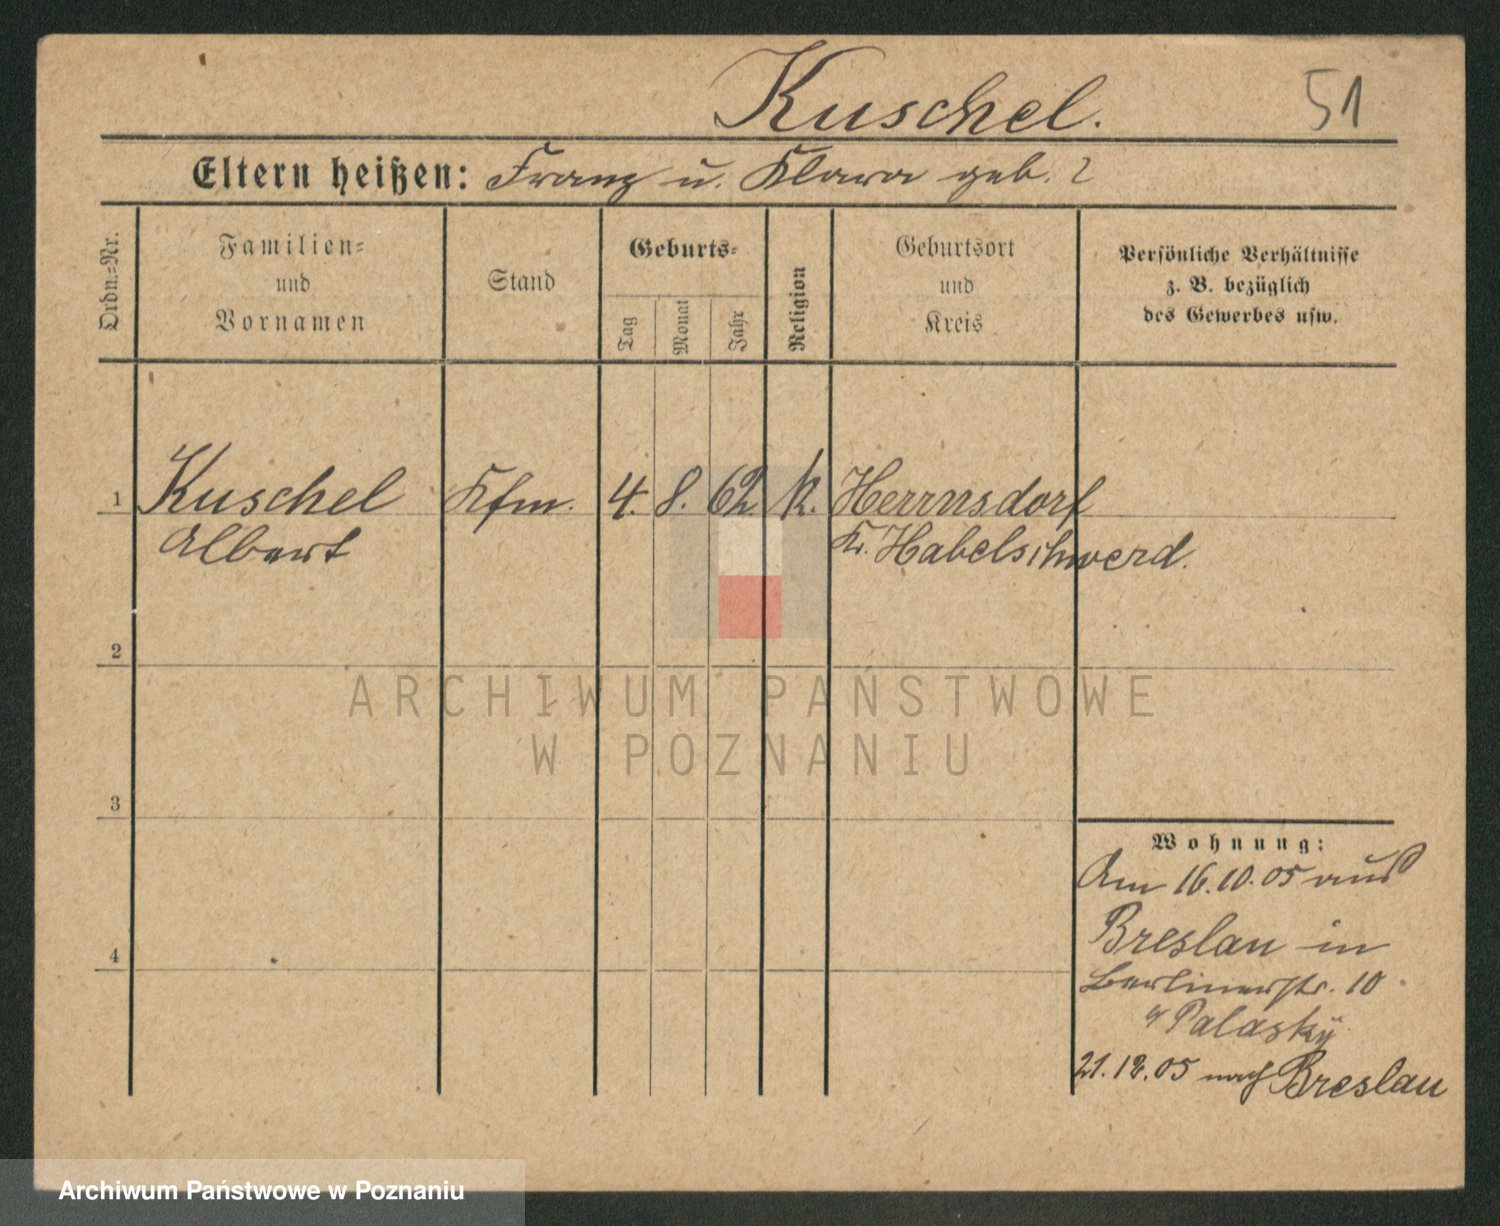 Kuschel.
51
Eltern heißen: Franz u. Klara geb. ?
Ordn.=Nr.
Familien=
und
Vornamen
Stand
Geburts=
Tag
Monat
Jahr
Religion
Geburtsort
und
Kreis
Persönliche Verhältnisse
z. B. bezüglich
des Gewerbes usw.
1 Kuschel Kfm. 4. 8. 62. k. Herrnsdorf
Albert Kr. Habelschwerd.
2
ARCHIWUM PAŃSTWOWE
W POZNANIU
3
Wohnung:
Am 16.10.05 aus
Breslau in
4
Berlinerstr. 10
Palasky
21.12.05 nach Breslau
Archiwum Państwowe w Poznaniu